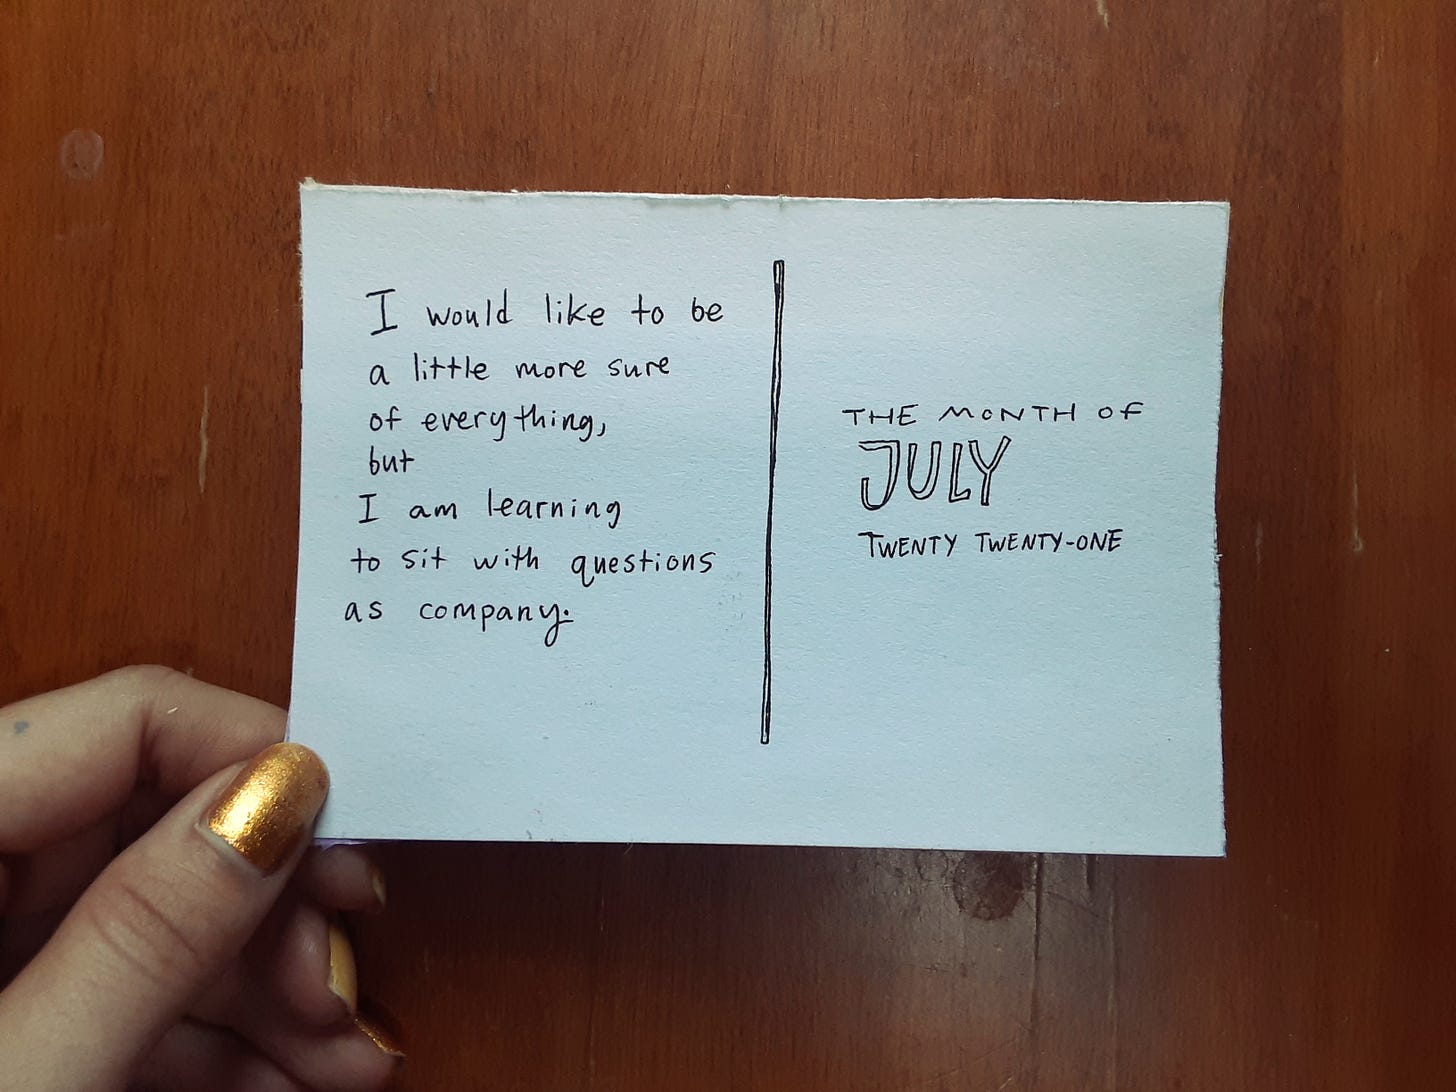 I would like to be
a little more sure
of everything,
but
I am learning
to sit with questions
as company.
THE MONTH OF
JULY
TWENTY TWENTY-ONE